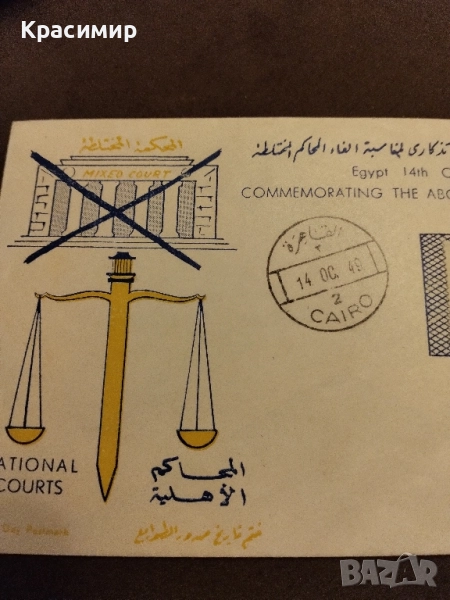 Красимир
المحكمة المختلطة
MIXED COURT
تذكارى لمناسبة الغاء المحاكم المختلطة
Egypt 14th O
COMMEMORATING THE ABO
القاهرة
14 OC. 49
2
CAIRO
ATIONAL
COURTS
المحاكم
الأهلية
Day Postmark
ختم تاريخ صدور الطوابع
BAZAR